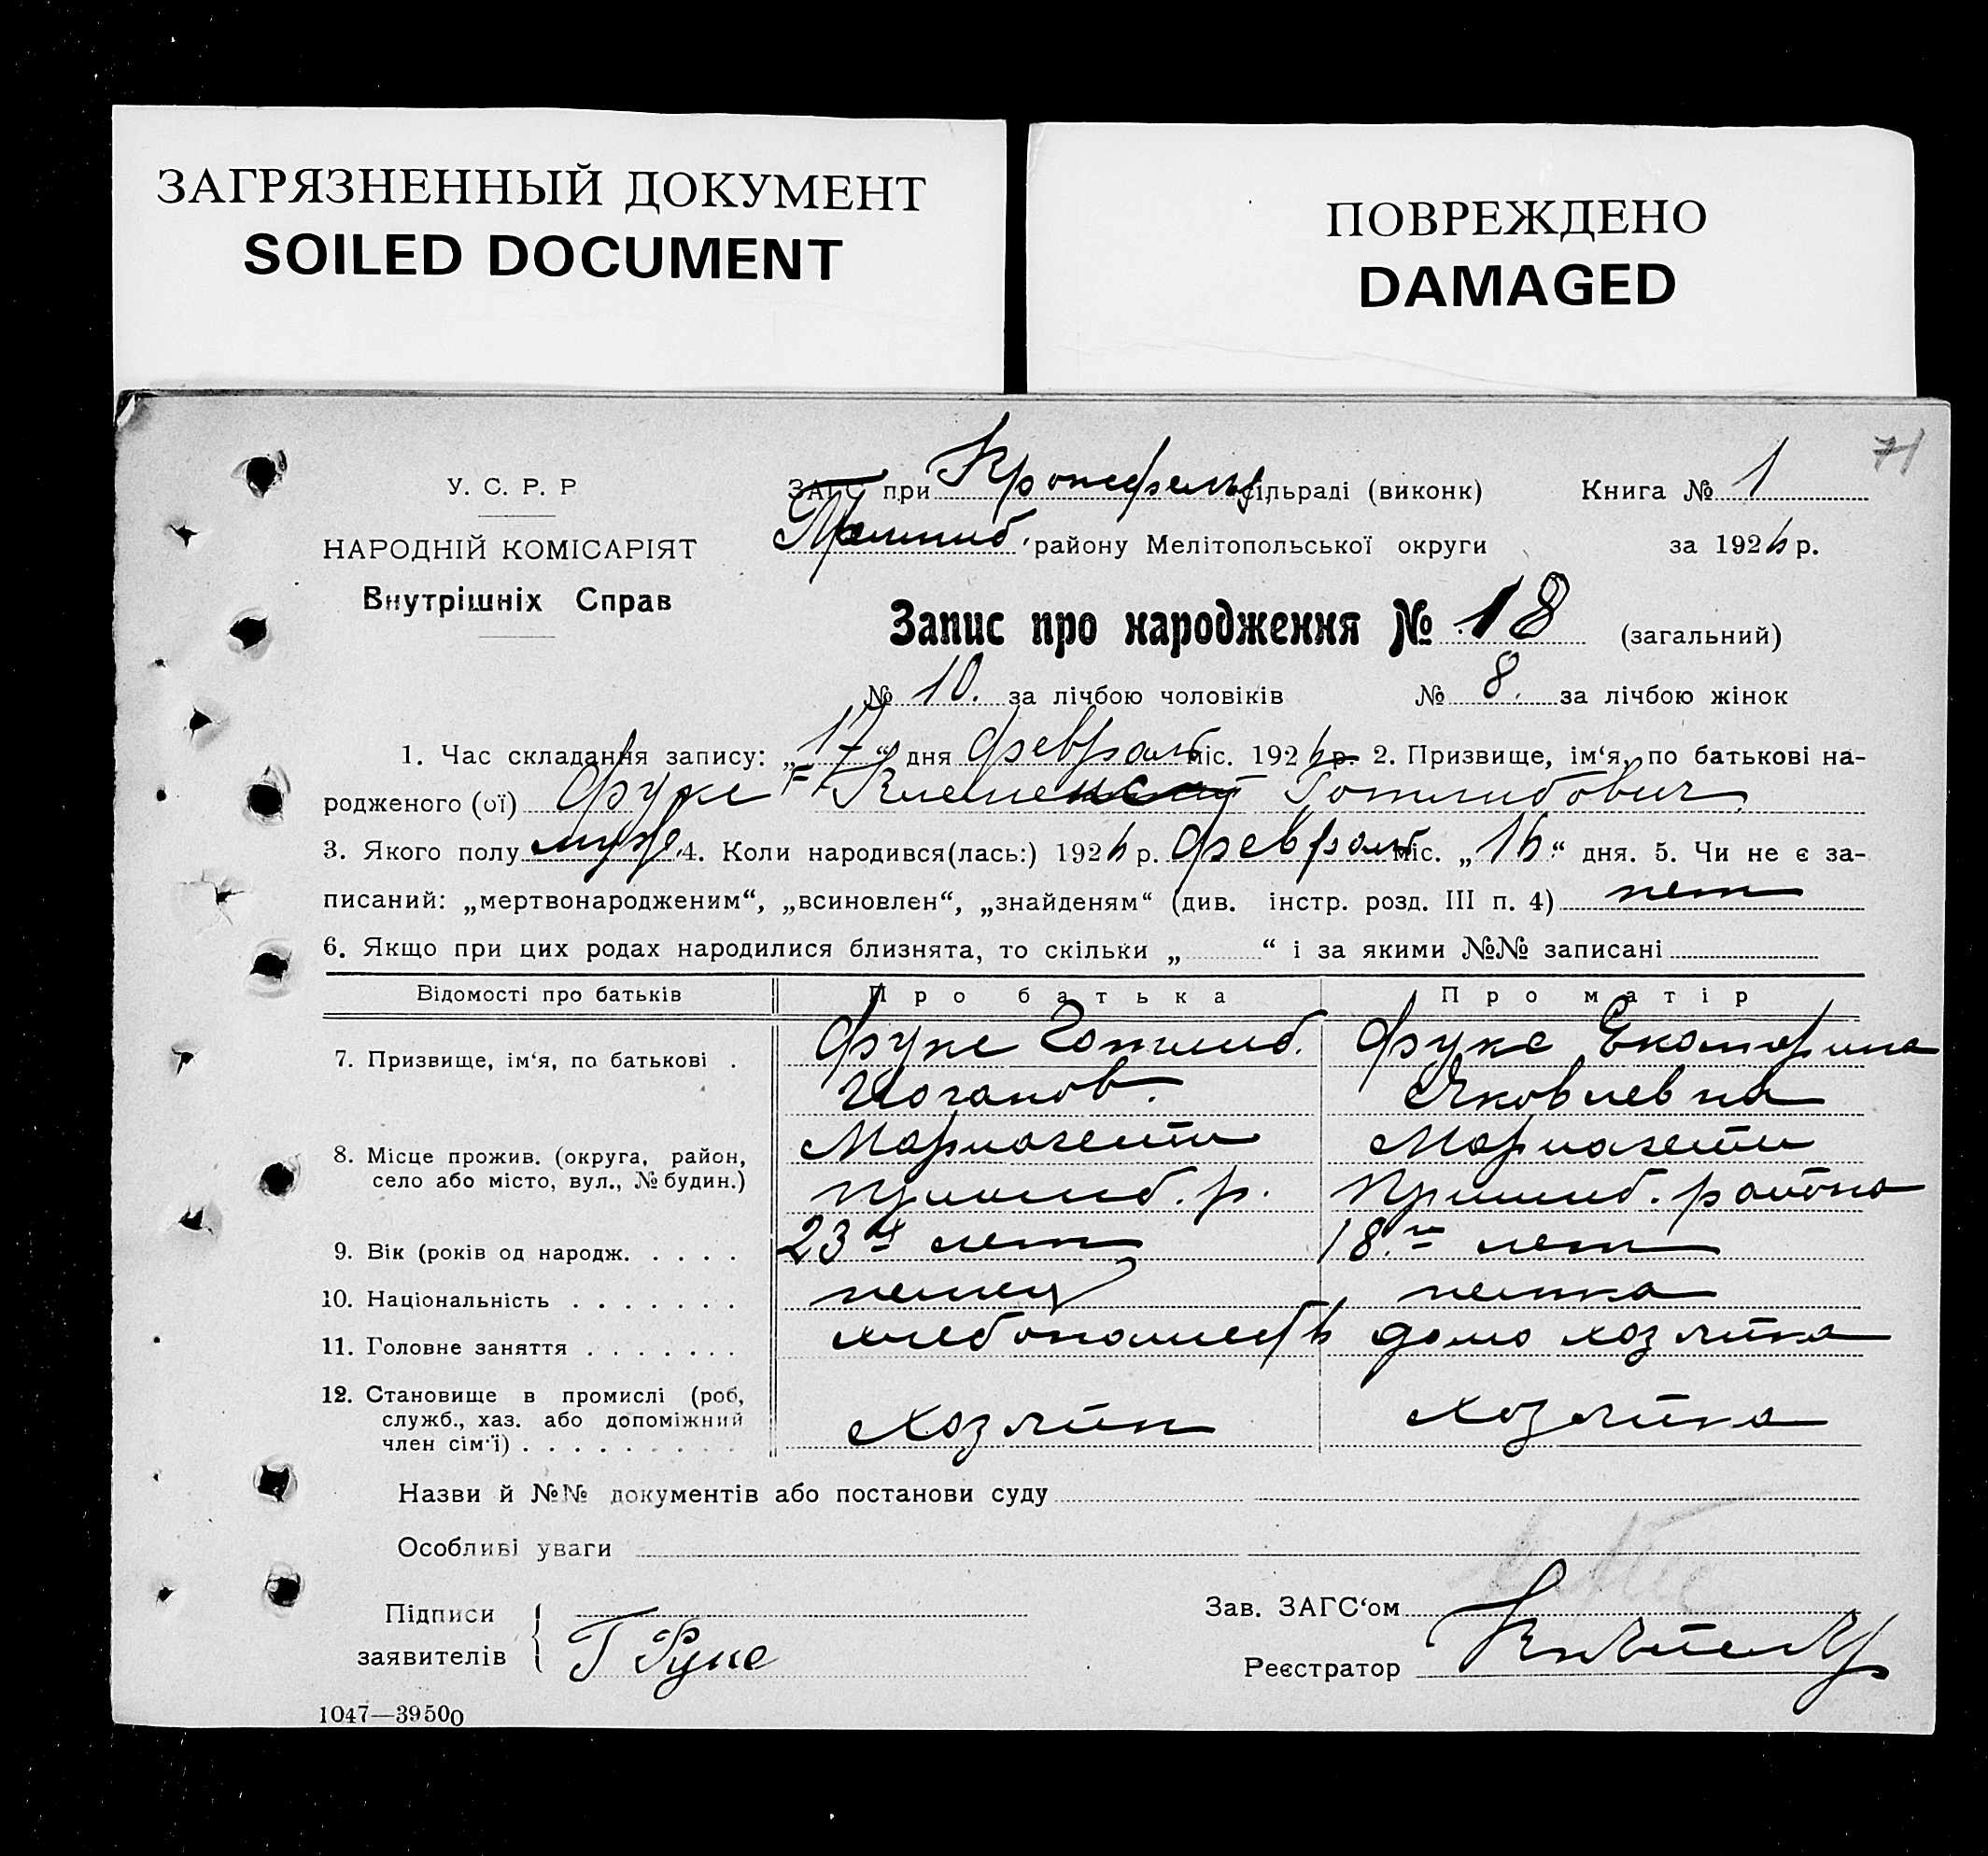 ЗАГРЯЗНЕННЫЙ ДОКУМЕНТ
SOILED DOCUMENT
ПОВРЕЖДЕНО
DAMAGED
71
У. С. Р. Р
НАРОДНІЙ КОМІСАРІЯТ
Внутрішніх Справ
ЗАГС при Кронсфельд, сільраді (виконк) Книга № 1
Пришиб. району Мелітопольської округи за 1926 р.
Запис про народження № 18 (загальний)
№ 10. за лічбою чоловіків № 8. за лічбою жінок
1. Час складання запису: „17“ дня февраль міс. 1926 р. 2. Призвище, ім‘я, по батькові на-
родженого (ої) Фукс Клеменс Готлибович
3. Якого полу муж. 4. Коли народився(лась:) 1926 р. февраль міс. „16“ дня. 5. Чи не є за-
писаний: „мертвонародженим“, „всиновлен“, „знайденям“ (див. інстр. розд. III п. 4) нет
6. Якщо при цих родах народилися близнята, то скільки „ “ і за якими №№ записані
Відомості про батьків Про батька Про матір
7. Призвище, ім‘я, по батькові . Фукс Готлиб. Фукс Екатерина
Иоганов. Яковлевна
8. Місце прожив. (округа, район, Мариагейм Мариагейм
село або місто, вул., № будин.) Пришиб. р. Пришиб. района
9. Вік (років од народж. . . . . 23 лет 18 лет
10. Національність . . . . . . . немец немка
11. Головне заняття . . . . . . . хлебопашест домохозяйка
12. Становище в промислі (роб,
служб., хаз. або допоміжний хозяин хозяйка
член сім‘ї) . . . . . . . . .
Назви й №№ документів або постанови суду
Особливі уваги
Підписи Зав. ЗАГС‘ом
заявителів Г Фукс Реєстратор
1047—39500